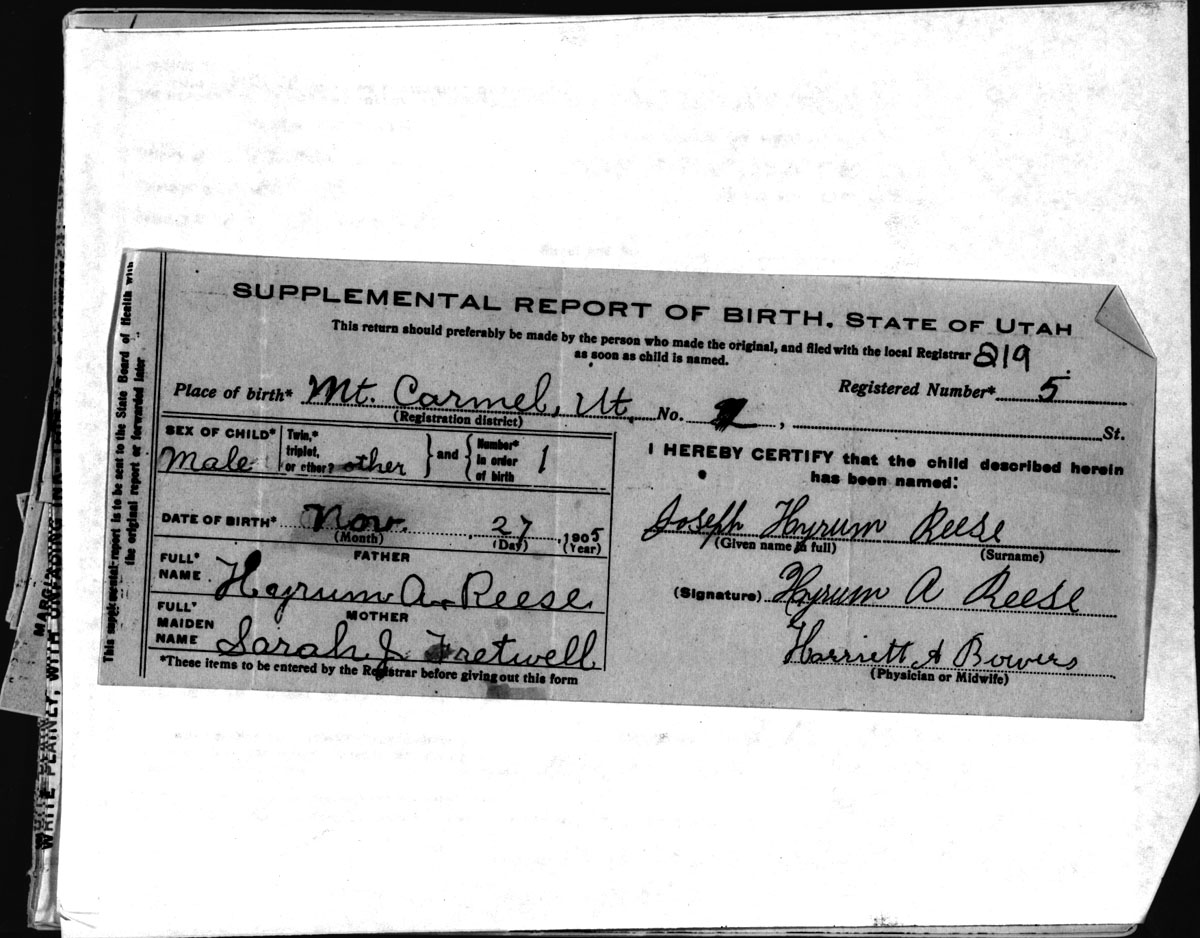 SUPPLEMENTAL REPORT OF BIRTH, STATE OF UTAH
This return should preferably be made by the person who made the original, and filed with the local Registrar 219
as soon as child is named.
Place of birth* Mt. Carmel, Ut. No. 2, St.
(Registration district)
Registered Number* 5
SEX OF CHILD* Male
Twin,* triplet, or other? other } and { Number* in order of birth 1
DATE OF BIRTH* Nov. 27, 1905
(Month) (Day) (Year)
FATHER
FULL* NAME Hyrum A. Reese
MOTHER
FULL* MAIDEN NAME Sarah J Fretwell
*These items to be entered by the Registrar before giving out this form
I HEREBY CERTIFY that the child described herein
has been named:
Joseph Hyrum Reese
(Given name in full) (Surname)
(Signature) Hyrum A Reese
Harriett A Bowers
(Physician or Midwife)
This supplemental report is to be sent to the State Board of Health with
the original report or forwarded later
WRITE PLAINLY, WITH UNFADING INK